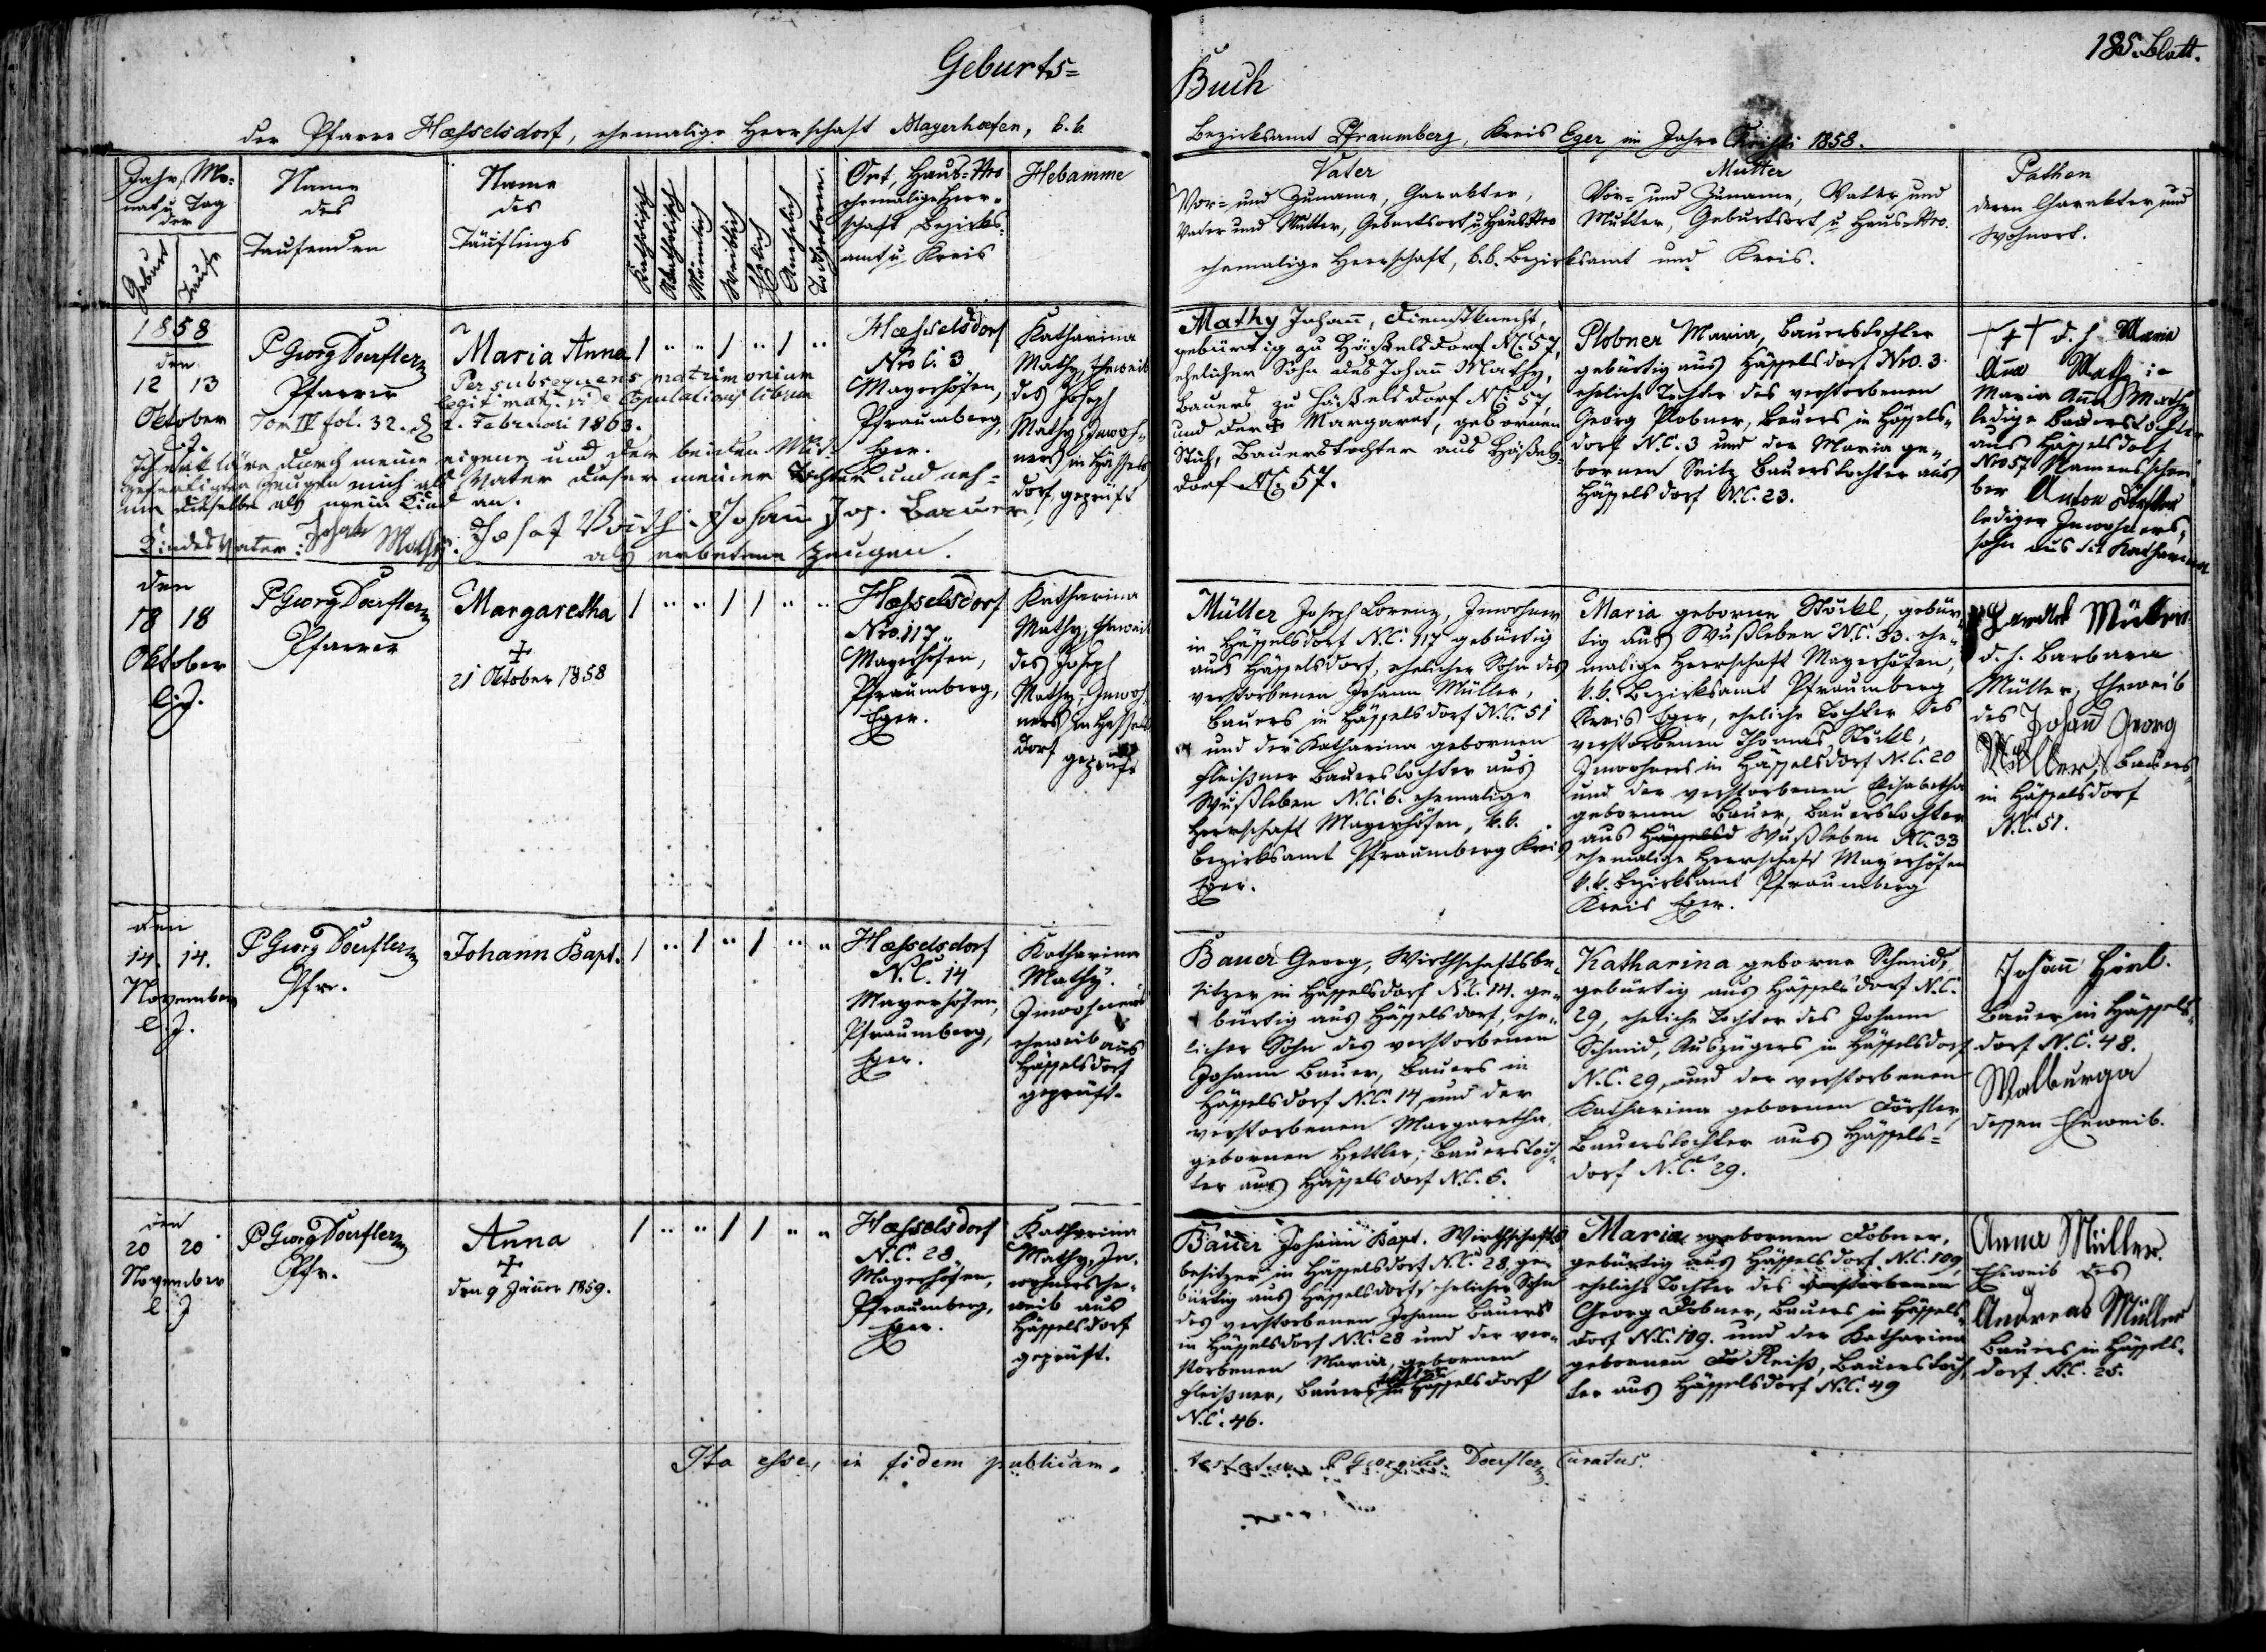 Geburts=
Buch
185. Blatt.
der Pfarre Hæsselsdorf, ehemalige Herrschaft Mayerhœfen, k.k.
Bezirksamt Pfraumberg, Kreis Eger im Jahre Christi 1858.
Jahr, Mo=
nat u Tag
der
Geburt
Taufe
Name
des
Taufenden
Name
des
Täuflings
Katholisch
Akatholisch
Männlich
Weiblich
Ehelich
Unehelich
Todtgeboren.
Ort, Haus=Nro
ehemalige Herr=
schaft, Bezirks=
amt u. Kreis
Hebamme
Vater
Vor= und Zuname, Carakter,
Vater und Mutter, Geburtsort u Haus Nro
ehemalige Herrschaft, k.k. Bezirksamt und Kreis.
Mutter
Vor= und Zuname, Vater und
Mutter, Geburtsort u Haus-Nro.
Pathen
deren Charakter und
Wohnort.
1858
den
12 13
Oktober
l. J.
P Georg Doerfler
Pfarrer
Maria Anna
Per subsequens matrimonium
legitimat. vide Copulationis librum
Tom IV fol. 32. d 2. Februari 1863.
Ich erkläre durch meine eigene und der beiden Mit=
gefertigten Zeugen mich als Vater dieser meiner Tochter und neh=
me dieselbe als mein Kind an.
Kindesvater: Johan Mathy.
Johann Jos. Bauer
als erbetene Zeugen.
Hæsselsdorf
Nro C. 3
Mayerhöfen,
Pfraumberg,
Eger.
Katharina
Mathy, Eheweib
des Joseph
Mathy Inwoh=
ners in Hässels
dorf, geprüft
Mathy Johañ, Dienstknecht,
gebürtig zu Häßelsdorf N.C. 57,
ehelicher Sohn des Johañ Mathy,
Bauers zu Häßelsdorf N.C. 57,
und der Margaret, gebornen
Bauerstochter aus Häßels
dorf N.C. 57.
Plobner Maria, Bauerstochter
gebürtig aus Hässelsdorf Nro. 3
eheliche Tochter des verstorbenen
Georg Plobner, Bauers in Hässels=
dorf N.C. 3 und der Maria ge=
bornen Seitz Bauerstochter aus
Hässelsdorf N.C. 23.
+++ d. h. Maria
Anna Mathy
Maria Anna Mathy
ledige Bauerstochter
aus Hässelsdorf
Nro 57 Namensschrei
ber Anton Dörfler
lediger Inwohners=
sohn aus
den
18 18
Oktober
l. J.
P Georg Doerfler
Pfarrer
Margaretha
+
21 Oktober 1858
Hæsselsdorf
Nro. 117
Mayerhöfen,
Pfraumberg,
Eger.
Katharina
Mathy, Eheweib
des Joseph
Mathy Inwoh=
ners in Hässels
dorf geprüft
Müller Joseph Lorenz, Inwohner
in Hässelsdorf N.C. 117 gebürtig
aus Hässelsdorf, ehelicher Sohn des
verstorbenen Johann Müller,
Bauers in Hässelsdorf N.C. 51
und der Katharina gebornen
Fleißner Bauerstochter aus
Wußleben N.C. 6. ehemalige
Herrschaft Mayerhöfen, k.k.
Bezirksamt Pfraumberg Kreis
Eger.
Maria geborne Stöckl, gebür=
tig aus Wußleben N.C. 33. ehe=
malige Herrschaft Mayerhöfen,
k.k. Bezirksamt Pfraumberg
Kreis Eger, eheliche Tochter des
verstorbenen Thomas Stöckl,
Inwohners in Hässelsdorf N.C. 20
und der verstorbenen Elisabetha
gebornen Bauer, Bauerstochter
aus Wußleben N.C. 33
ehemalige Herrschaft Mayerhöfen
k.k. Bezirksamt Pfraumberg
Kreis Eger.
Müller
d. h. Barbara
Müller, Eheweib
des Johañ Georg
Müller, Bauers
in Hässelsdorf
N.C. 51.
den
14. 14.
November
l. J.
P Georg Doerfler
Pfr.
Johann Bapt.
Hæsselsdorf
N.C. 14
Mayerhöfen,
Pfraumberg,
Eger.
Katharina
Mathy.
Inwohners
eheweib aus
Hässelsdorf
geprüft.
Bauer Georg, Wirthschaftsbe=
sitzer in Hässelsdorf N.C. 14. ge=
bürtig aus Hässelsdorf, ehe=
licher Sohn des verstorbenen
Johann Bauer, Bauers in
Hässelsdorf N.C. 14, und der
verstorbenen Margaretha
gebornen Hettler, Bauerstoch=
ter aus Hässelsdorf N.C. 6.
Katharina geborne Schmid,
gebürtig aus Hässelsdorf N.C.
29, eheliche Tochter des Johann
Schmid, Auszügers in Hässelsdorf
N.C. 29, und der verstorbenen
Katharina gebornen Dörfler,
Bauerstochter aus Hässels=
dorf N.C. 29.
Johann
Bauer in Hässels=
dorf N.C. 48.
Walburga
dessen Eheweib.
den
20 20
November
l. J
P Georg Doerfler
Pfr.
Anna
+
den 9 Jäner 1859.
Hæsselsdorf
N.C. 28
Mayerhöfen,
Pfraumberg,
Eger.
Katharina
Mathy, In=
wohnersehe=
weib aus
Hässelsdorf
geprüft.
Bauer Johann Bapt. Wirthschafts
besitzer in Hässelsdorf N.C. 28, ge=
bürtig aus Hässelsdorf, ehelicher Sohn
des verstorbenen Johann Bauers
in Hässelsdorf N.C. 28 und der ver=
storbenen Maria, gebornen
Fleißner, Bauers Hässelsdorf
N.C. 46.
Maria gebornen Dobner,
gebürtig aus Hässelsdorf N.C. 109,
eheliche Tochter des verstorbenen
Georg Dobner, Bauers in Hässels=
dorf N.C. 109. und der Katharina
gebornen Fleiß, Bauerstoch=
ter aus Hässelsdorf N.C. 49
Anna Müller.
Eheweib des
Andreas Müller
Bauers in Hässels=
dorf N.C. 25.
Ita esse, in fidem publicam
testatur P Georgius Doerfler Curatus.